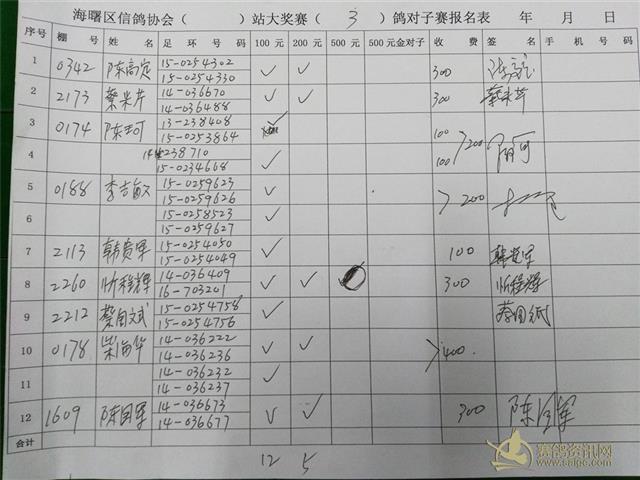 海曙区信鸽协会（ ）站大奖赛（ 3 ）鸽对子赛报名表 年 月 日
序号 棚号 姓名 足环号码 100元 200元 500元 500元金对子 收费 签名 手机号码
1 0342 陈高定 15-0254302 ✓ ✓ 300
15-0254330
2 2173 蔡来芹 14-036670 ✓ ✓ 300 蔡来芹
14-036488
3 0174 13-238408 ✓ 100
15-0253864
4 238710 ✓ 100 >200
15-0234668
5 0188 15-0259623 ✓ >200
15-0259626
6 15-0258523 ✓
15-0259627
7 2113 韩贵军 15-0254050 ✓ 100 韩贵军
15-0254049
8 2260 忻程辉 14-036409 ✓ ✓ 300 忻程辉
16-703201
9 2212 蔡国斌 15-0254758 ✓ 蔡国斌
15-0254756
10 0178 柴海华 14-036222 ✓ >400
14-036236
11 14-036232 ✓
14-036237
12 1609 陈国军 14-036673 ✓ ✓ 300 陈国军
14-036677
合计
12 5
赛鸽资讯网
www.saige.com